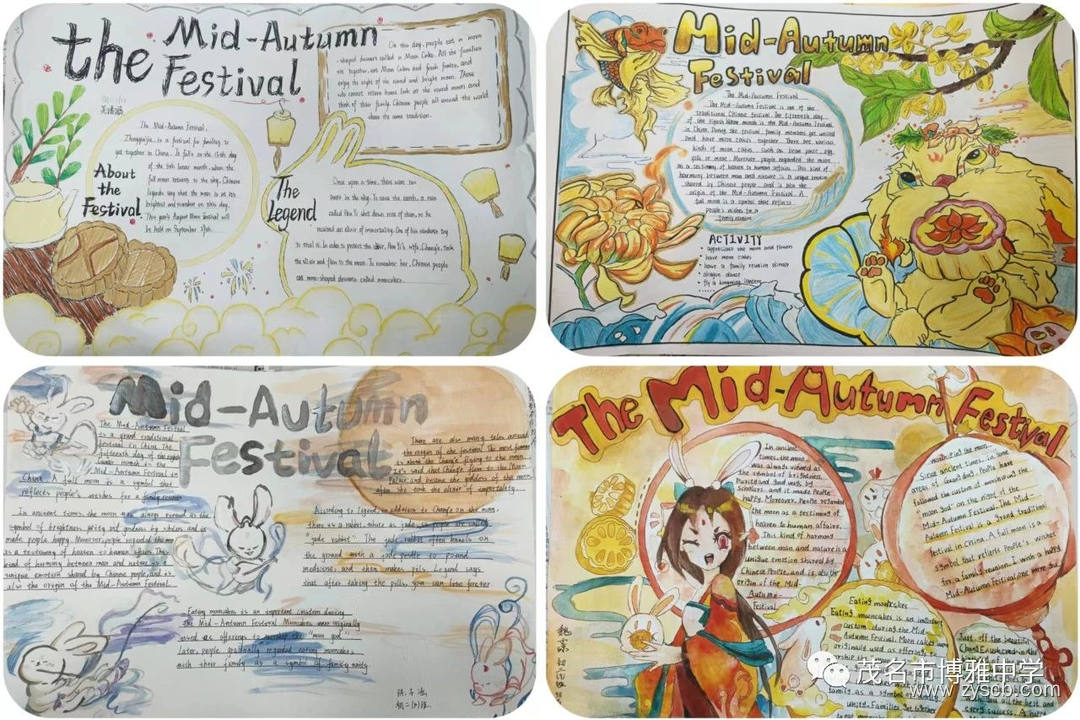 the Mid-Autumn
Festival
On this day, people eat a moon
-shaped dessert called a Moon Cake. All the families
sit together, eat Moon Cakes and fresh fruits, and
enjoy the sight of the round and bright moon. Those
who cannot return home look at the round moon and
think of their family. Chinese people all around the world
share the same tradition.
About
the
Festival
The Mid-Autumn Festival,
Zhongqiujie, is a festival for families to
get together in China. It falls on the 15th day
of the 8th lunar month, when the
full moon returns to the sky. Chinese
legends say that the moon is at its
brightest and roundest on this day.
This year's August Moon Festival will
be held on September
The
Legend
Once upon a time, there were ten
suns in the sky. To save the earth, a man
called Hou Yi shot down nine of them, so he
received an elixir of immortality. One of his students
to steal it. In order to protect the elixir, Hou Yi's wife, Chang'e, took
the elixir and flew to the moon. To remember her, Chinese people
eat moon-shaped desserts called mooncakes.
Mid-Autumn
Festival
The Mid-Autumn Festival
The Mid-Autumn Festival is one of the
traditional Chinese festival. The fifteenth day
of the eighth lunar month is the Mid-Autumn Festival
in China. During the festival, family members get united
and have moon cakes together. There are various
kinds of moon cakes, such as bean paste, egg
yolk or more. Moreover, people regarded the moon
as a testimony of heaven to human affairs. This kind of
harmony between man and nature is a unique emotion
shared by Chinese people, and is also the
origin of the Mid-Autumn Festival. A
full moon is a symbol that reflects
people's wishes for a
family reunion
ACTIVITY
• appreciate the moon and flowers
• have moon cakes
• have a family reunion dinner
• dragon dance
• fly a kongming lantern
Mid-Autumn
Festival
The Mid-Autumn Festival
is a grand traditional
festival in China. The
fifteenth day of the eighth
lunar month is the
Mid-Autumn Festival in
China. A full moon is a symbol that
reflects people's wishes for a family reunion
In ancient times, the moon was always viewed as the
symbol of brightness, purity and goodness by scholars, and it
made people happy. Moreover, people regarded the moon
as a testimony of heaven to human affairs. This
kind of harmony between man and nature is a
unique emotion shared by Chinese people, and is
also the origin of the Mid-Autumn Festival.
There are also many tales around
the origin of the festival. The most famous
is about the Chang'e flying to the moon.
It's said that Chang'e flew to the Moon
Palace and became the goddess of the moon
after she took the elixir of immortality.
According to legend, in addition to Chang'e on the moon,
there is a rabbit white as jade, so people
"jade rabbit". The jade rabbit often kneels on
the ground with a jade pestle to pound
medicine, and then makes pills. Legend says
that after taking the pills, you can live forever
Eating mooncakes is an important custom during
the Mid-Autumn Festival. Mooncakes were originally
used as offerings to worship the "moon god".
Later, people gradually regarded eating mooncakes
with their family as a symbol of family unity
The Mid-Autumn Festival
In ancient
times, the moon
was always viewed as
the symbol of brightness,
purity and goodness by
scholars, and it made people
happy. Moreover, people regarded
the moon as a testimony of
heaven to human affairs.
This kind of harmony
between man and nature is a
unique emotion shared by
Chinese people, and is also the
origin of the Mid
Autumn
Festival
Since ancient times, in some
areas of Guangdong, people have
followed the custom of worshiping the
"moon god" on the night of the
Mid-Autumn Festival. The Mid-
Autumn Festival is a grand traditional
festival in China. A full moon is a
symbol that reflects people's wishes
for a family reunion. I wish a happy
Mid-Autumn Festival
Eating mooncakes
Eating mooncakes is an important
custom during the Mid-
Autumn Festival. Mooncakes were
originally used as offerings to
family as a symbol of family
unity. Families get together
茂名市博雅中学
www.zyscb.com